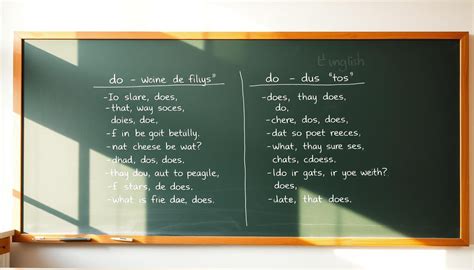 English
do – woine de filys"
-Io slare, does,
-that, way soces,
doies, doe,
-f in be goit betully.
-nat cheese be wat?
-dhad, dos, does.
-thoy dou, aut to peagile,
-f stars, de does.
-what is frie dae, does.
do – dus "tos"
-does, thay does,
do,
-chere, dos, does,
-dat so poet reeces.
-what, thay sure ses,
chats, cdoess.
-Ido ir gats, ir yoe weith?
does,
-Jate, that does.